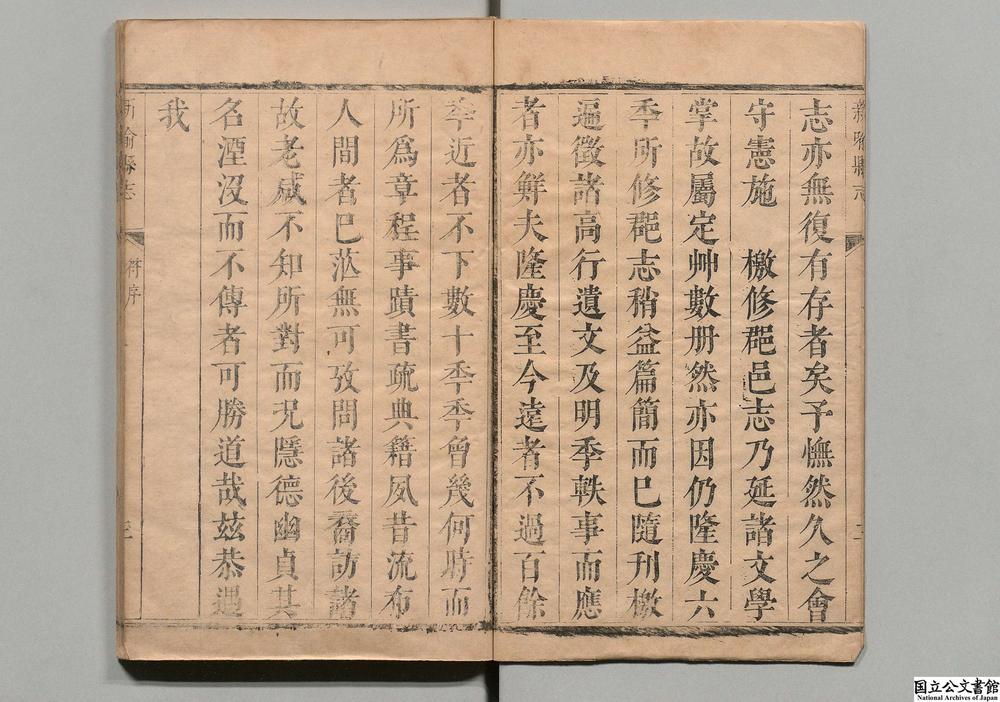 新喻縣志
志亦無復有存者矣予憮然久之會
守憲施　檄修郡邑志乃延諸文學
掌故屬定艸數册然亦因仍隆慶六
季所修郡志稍益篇簡而巳隨刊檄
遍徵諸高行遺文及明季軼事而應
者亦鮮夫隆慶至今遠者不過百餘
季近者不下數十季季曾幾何時而
所爲章程事蹟書疏典籍夙昔流布
人間者巳茫無可攷問諸後裔訪諸
故老咸不知所對而況隱德幽貞其
名湮沒而不傳者可勝道哉兹恭遇
我
新喻縣志
符序
三
国立公文書館
National Archives of Japan